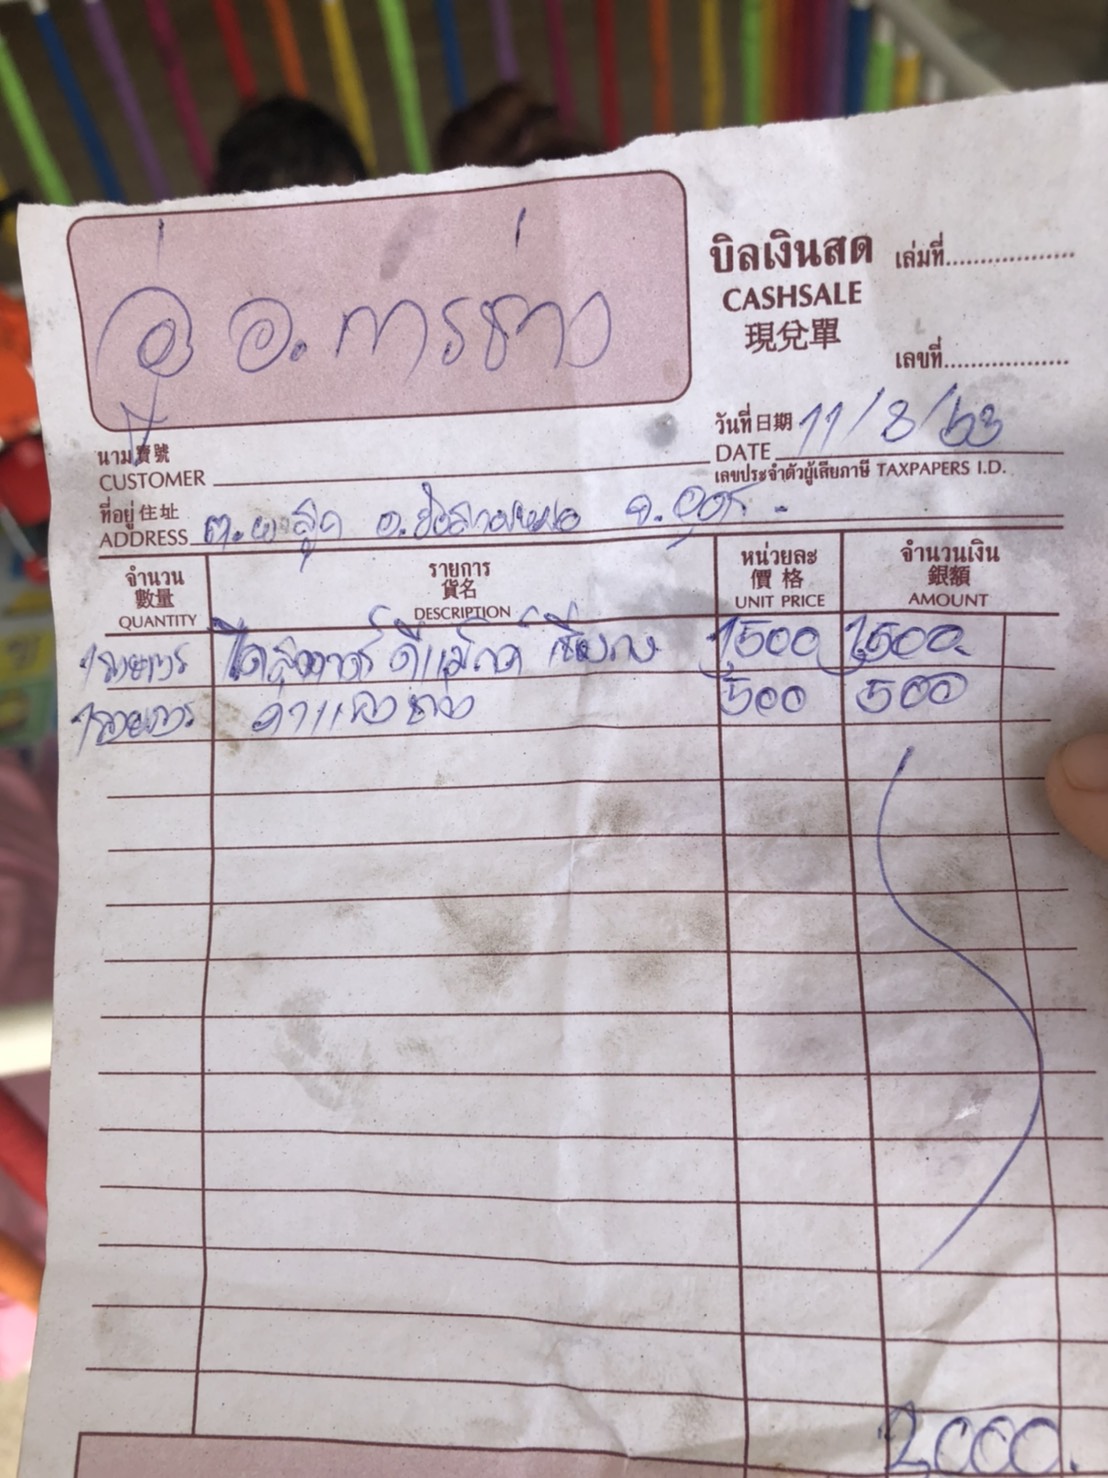 อู่ อ. การช่าง
บิลเงินสด
CASHSALE
現兌單
เล่มที่
เลขที่
นาม寶號
CUSTOMER
วันที่日期 11/8/63
DATE
เลขประจำตัวผู้เสียภาษี TAXPAPERS I.D.
ที่อยู่住址
ADDRESS ต.ผาสุก อ.วังสามหมอ จ.อุดร.
จำนวน รายการ หน่วยละ จำนวนเงิน
數量 貨名 價格 銀額
QUANTITY DESCRIPTION UNIT PRICE AMOUNT
1รายการ ไดสตาร์ท ดีแม็กซ์ 1500 1500
1รายการ ค่าแรงช่าง 500 500
2000.